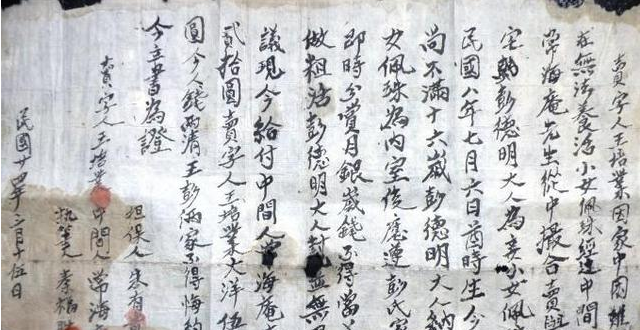 賣字人王培業因家中困難
在無法養活小女佩珠經過中間
常海庵先生從中撮合賣與
宅歟彭德明大人為妾小女佩
民國八年七月六日酉時生今
尚不滿十六歲彭德明大人納
女佩珠為內室後應遵彭氏家
即時分賞月銀歲錢不得當
做粗活彭德明大人 無
議現今給付中間人常海庵大
貳拾圓賣字人王培業大洋伍
圓今人錢兩清王彭兩家不得悔約
今立書為證
賣字人王培業
担保人朱有
中間人常海
執筆人李福
民國廿四年三月十伍日